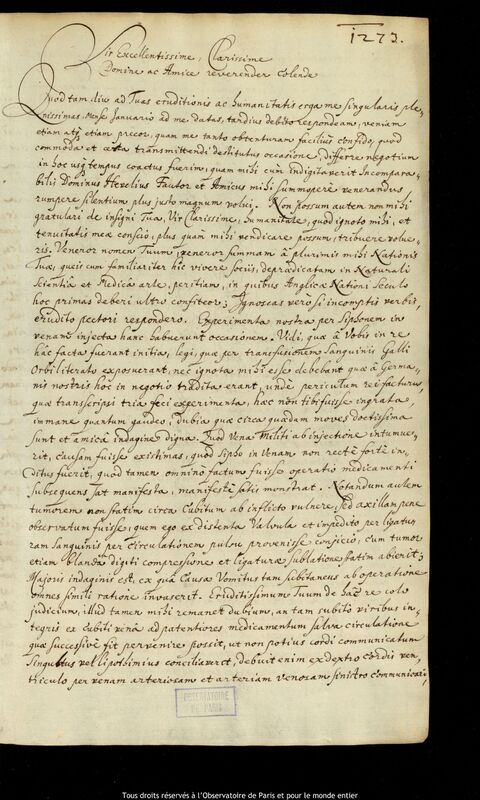 1273.
Vir Excellentissime, Clarissime
Domine ac Amice reverenter Colende
Quod tam diu ad Tuas eruditionis ac humanitatis erga me singularis ple-
nissimas, Mense Januario ad me datas, tardius debito respondeam, veniam
etiam atq; etiam precor, quam me tanto obtenturum facilius confido, quod
commoda et certa transmittendi destitutus occasione, differre negotium
in hoc usq; tempus coactus fuerim, quam mihi cum indigitaverit Incompara-
bilis Dominus Hevelius Fautor et Amicus mihi summopere venerandus
rumpere silentium plus justo magnum volui. Non possum autem non mihi
gratulari de insigni Tua, Vir Clarissime, humanitate, quod ignoto mihi, et
tenuitatis meæ conscio, plus quam mihi vendicare possum, tribuere volue-
ris. Veneror nomen Tuum, veneror summam à plurimis mihi Nationis
Tuæ, queis cum familiariter hic vivere soleo, deprædicatam in Naturali
Scientia et Medica arte, peritiam, in quibus Anglicæ Nationi Seculo
hoc primas deberi ultro confiteor. Ignoscas vero si incomptis verbis,
erudito pectori respondero. Experimenta nostra per Siphonem in
venam injecta hanc habuerunt occasionem. Vidi, quæ à Vobis in re
hac facta fuerant initia, legi, quæ per transfusionem Sanguinis Galli
Orbi literato exposuerant, nec ignota mihi esse debebant quæ à Germa-
nis nostris hoc in negotio tradita erant, unde periculum rei facturus,
quæ transcripsi tria feci experimenta, hæc non tibi fuisse ingrata,
immane quantum gaudeo, Dubia quæ circa quædam moves doctissima
sunt et amica indagine digna. Quod Vena Militi ab injectione intumue-
rit, causam fuisse existimas, quod Sipho in Venam non recte forte in-
ditus fuerit, quod tamen omnino factum fuisse operatio medicamenti
subsequens sat manifesta, manifeste satis monstrat. Notandum autem
tumorem non statim circa Cubitum ab inflicto vulnere, sed axillam pene
observatum fuisse, quem ego ex distenta Valvula et impedito per ligatu-
ram Sanguinis per circulationem pulsu provenisse conjicio, cum tumor
etiam blanda digiti compressione et ligaturæ sublatione statim abierit;
Majoris indaginis est, ex qua Causa Vomitus tam subitaneus ab operatione
omnes simili ratione invaserit. Eruditissimum Tuum de hac re colo
judicium, illud tamen mihi remanet dubium, an tam subito viribus in-
tegris ex Cubiti vena ad patentiores medicamentum salva circulatione
quæ successive fit pervenire possit, ut non potius cordi communicatum
singultus vel lipothimias conciliaverit, debuit enim ex dextro cordis ven-
triculo per venam arteriosam et arteriam venosam sinistro communicari,
OBSERVATOIRE
DE PARIS
Tous droits réservés à l'Observatoire de Paris et pour le monde entier